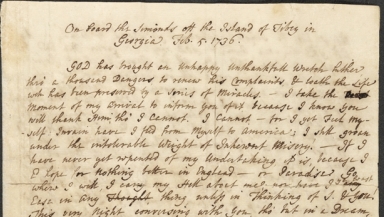 On board the Simonds off the Island of Tibey in
Georgia Feb. 5. 1736.
GOD has brought an Unhappy Unthankfull Wretch hither
thro' a thousand Dangers to renew his Complaints, & loath the Life
wch has been preserved by a Series of Miracles. — I take the
Moment of my Arrival to inform you of it because I know you
will thank Him, tho' I cannot. I cannot — for I yet feel my-
self. In vain have I fled from Myself to America; I still groan
under the intolerable Weight of Inherent Misery. — If I
have never yet repented of my Undertaking, it is, because I
hope for nothing better in England — or Paradise. Go
where I will, I carry my Hell about me; nor have I
Ease in any thing, unless in Thinking of S. & You!
This very Night conversing with You tho' but in a Dream